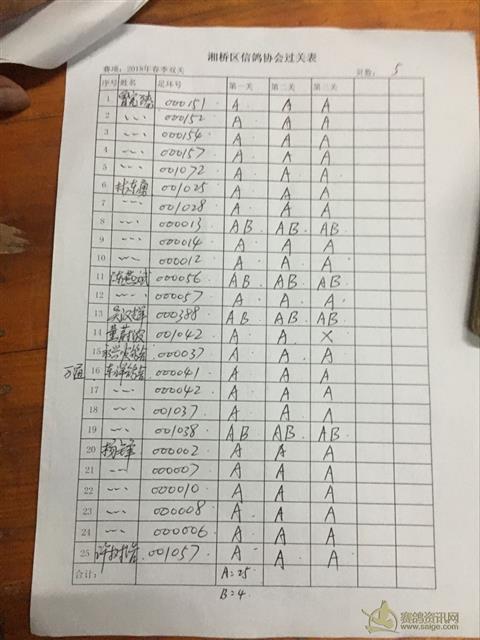 湘桥区信鸽协会过关表
赛项：2018年春季双关 页数：5
序号 姓名 足环号 第一关 第二关 第三关
1 000151 A A A
2 〃 000152 A A A
3 〃 000154 A A A
4 〃 000157 A A A
5 〃 001072 A A A
6 001025 A A A
7 〃 001028 A A A
8 〃 000013 AB AB AB
9 〃 000014 A A A
10 〃 000012 A A A
11 000056 AB AB AB
12 〃 000057 A A A
13 000388 AB AB AB
14 001042 A A X
15 000037 A A A
万通 16 000041 A A A
17 〃 000042 A A A
18 〃 001037 A A A
19 〃 001038 AB AB AB
20 000002 A A A
21 〃 000007 A A A
22 〃 000010 A A A
23 〃 000008 A A A
24 〃 000006 A A A
25 001057 A A A
合计： A=25
B=4
赛鸽资讯网
www.saige.com